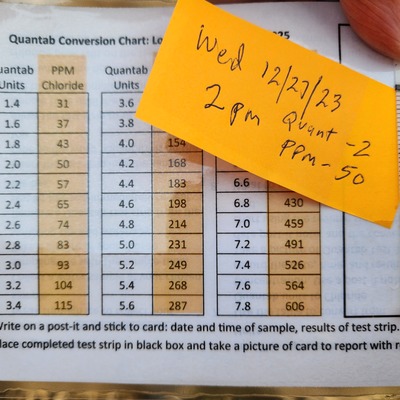 Quantab Conversion Chart: Lo 025
Wed 12/27/23
2pm Quant - 2
PPM - 50
uantab PPM Quantab
Units Chloride Units
1.4 31 3.6
1.6 37 3.8
1.8 43 4.0 154
2.0 50 4.2 168
2.2 57 4.4 183 6.6
2.4 65 4.6 198 6.8 430
2.6 74 4.8 214 7.0 459
2.8 83 5.0 231 7.2 491
3.0 93 5.2 249 7.4 526
3.2 104 5.4 268 7.6 564
3.4 115 5.6 287 7.8 606
Write on a post-it and stick to card: date and time of sample, results of test strip.
lace completed test strip in black box and take a picture of card to report with r